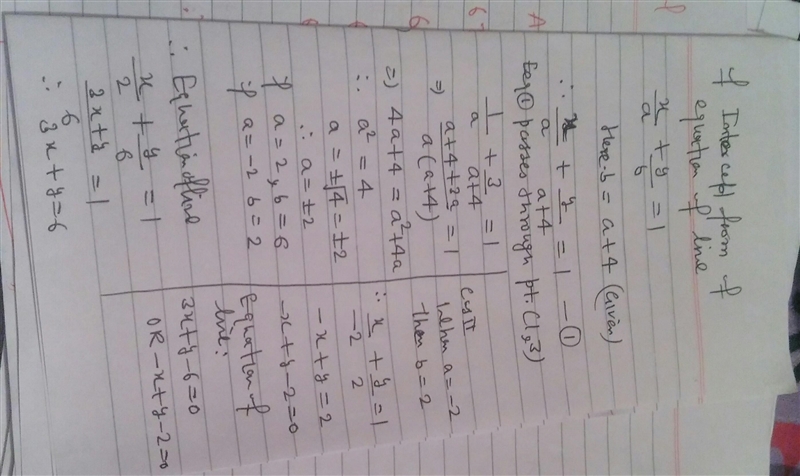 If Intercept from of
equation of line
x/a + y/b = 1
Here b = a+4 (Given)
∴ x/a + y/(a+4) = 1 — ①
Eq ① passes through pt. (1,3)
1/a + 3/(a+4) = 1
⇒ (a+4+3a)/(a(a+4)) = 1
⇒) 4a+4 = a²+4a
∴ a² = 4
a = ±√4 = ±2
∴ a = ±2
If a = 2, b = 6
If a = -2 b = 2
∴ Equation of line
x/2 + y/6 = 1
(3x+y)/6 = 1
∴ 3x+y = 6
Cas II
When a = -2
then b = 2
∴ x/-2 + y/2 = 1
-x+y = 2
-x+y-2=0
Equation of
line:
3x+y-6=0
OR -x+y-2=0